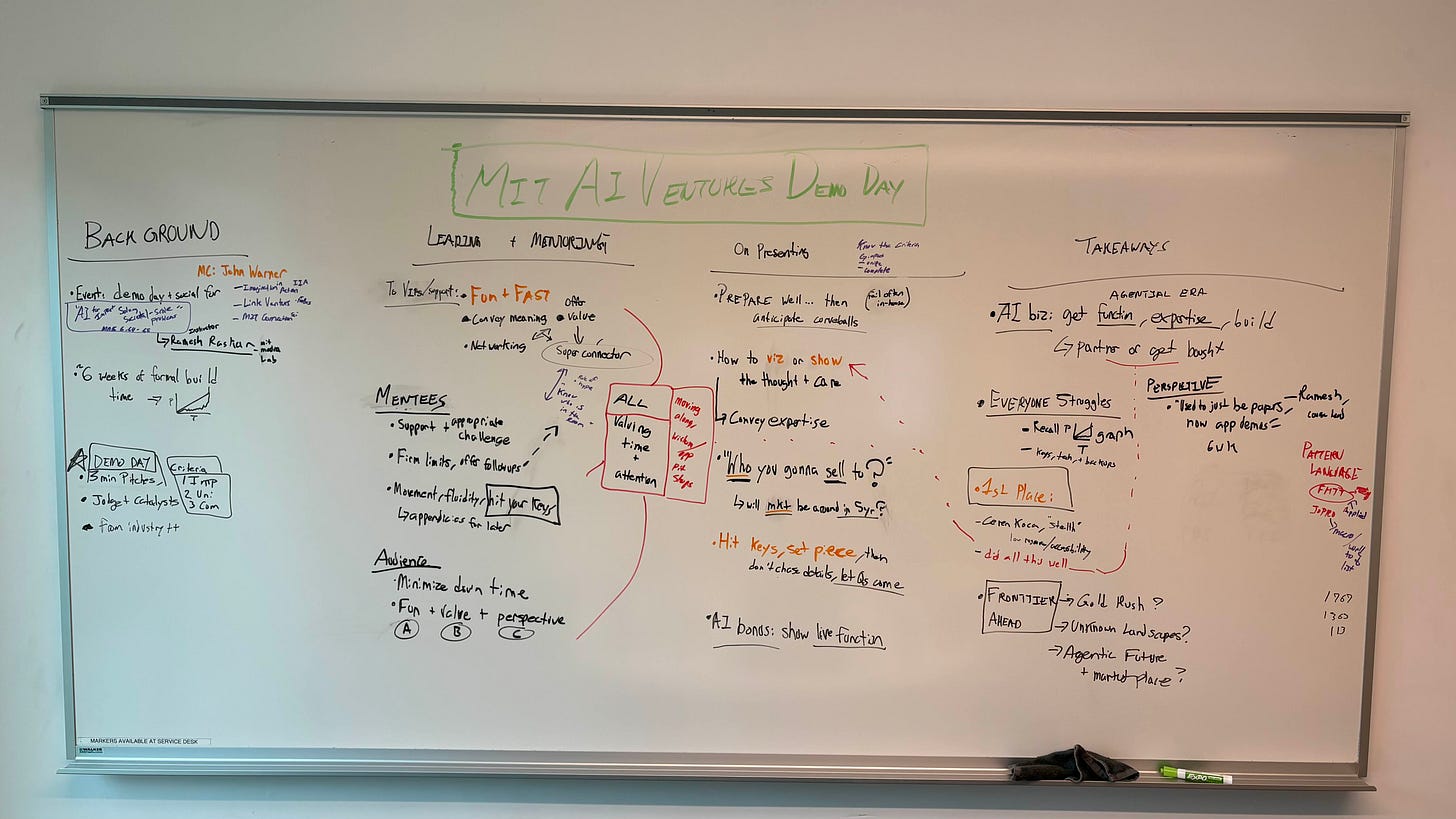 MIT AI VENTURES DEMO DAY
BACKGROUND
MC: John Warner
• Event: demo day + social for
"AI for
societal-scale
problems
Instructor
Ramesh Raskar
MIT
media
Lab
- Imagination in Action
IIA
- Link Ventures
- MIT Connection
• ~6 weeks of formal build
time →
T
DEMO DAY
• 3 min Pitches,
• Judges + Catalysts
• From industry ++
Criteria
1 Imp
2 Uni
3 Com
LEADING + MENTORING
To VIPs/support:
• Fun + FAST
• Convey meaning
• Networking
offer
• value
Super connector
Know
who is
in the
room
MENTEES
• Support + appropriate
challenge
• Firm limits, offer followups
• Movement/fluidity, hit your keys
↳ appendicies for later
Audience
• Minimize down time
• Fun + value + perspective
A B C
ALL
Valuing
time
+
attention
moving
along/
pit
stops
On Presenting
Know the criteria
- unique
- complete
• PREPARE well... then
anticipate curveballs
(fail often
in-house)
• How to viz or show
the thought + care
↳ Convey expertise
• "Who you gonna sell to?"
↳ will mkt be around in 5yr?
• Hit keys, set piece, then
don't chase details, let Qs come
• AI bonus: show live function
TAKEAWAYS
AGENTIAL ERA
• AI biz: get functin, expertise, build
↳ partner or get bought
• EVERYONE Struggles
- Recall P T graph
- Keys, tech, + backups
PERSPECTIVE
• "Used to just be papers,
now app demos"
6 wk
- Ramesh,
• 1st Place:
- Ceren Koca, "Stealth"
- did all this well
• FRONTTIER
AHEAD
→ Gold Rush?
→ Unknown Landscapes?
→ Agentic Future
+ marketplace?
PATTERN
LANGUAGE
Applied
MARKERS AVAILABLE AT SERVICE DESK
EXPO